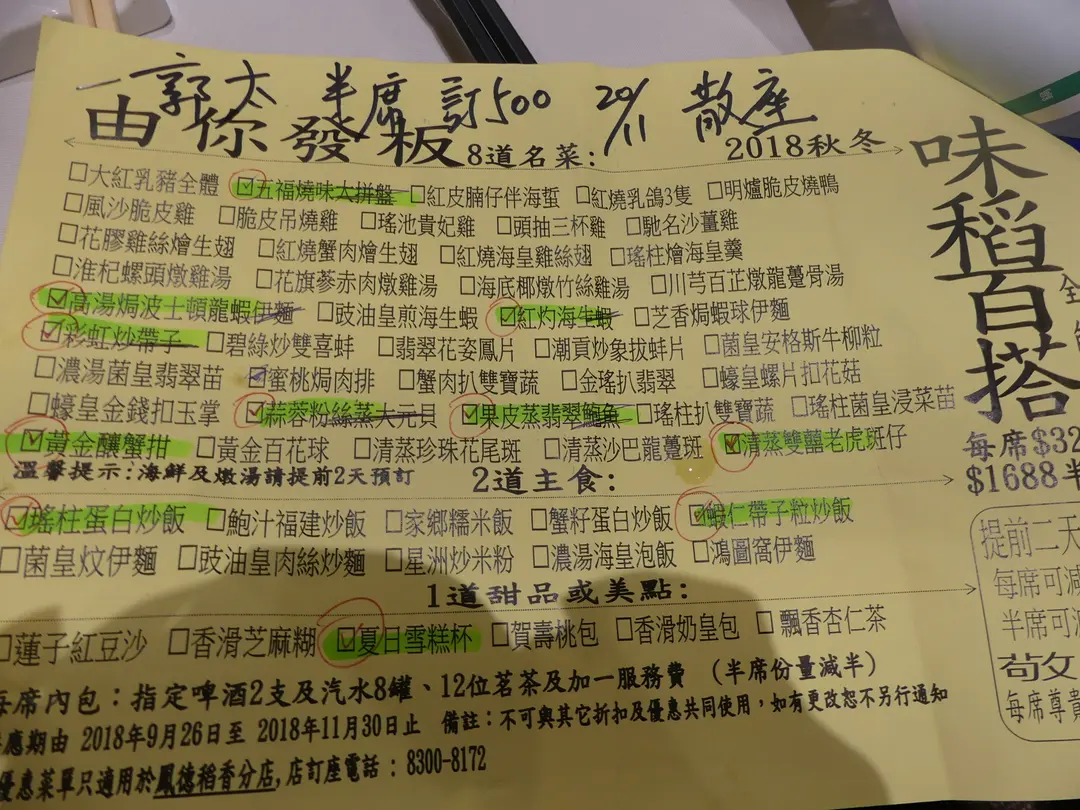 郭太 半席 訂500 20/11 散座
由你發板 8道名菜: 2018秋冬
□大紅乳豬全體 ☑五福燒味大拼盤 □紅皮腩仔伴海蜇 □紅燒乳鴿3隻 □明爐脆皮燒鴨
□風沙脆皮雞 □脆皮吊燒雞 □瑤池貴妃雞 □頭抽三杯雞 □馳名沙薑雞
□花膠雞絲燴生翅 □紅燒蟹肉燴生翅 □紅燒海皇雞絲翅 □瑤柱燴海皇羹
□淮杞螺頭燉雞湯 □花旗蔘赤肉燉雞湯 □海底椰燉竹絲雞湯 □川芎百芷燉龍躉骨湯
☑高湯焗波士頓龍蝦伊麵 □豉油皇煎海生蝦 ☑紅灼海生蝦 □芝香焗蝦球伊麵
☑彩虹炒帶子 □碧綠炒雙喜蚌 □翡翠花姿鳳片 □潮貢炒象拔蚌片 □菌皇安格斯牛柳粒
□濃湯菌皇翡翠苗 ☑蜜桃焗肉排 □蟹肉扒雙寶蔬 □金瑤扒翡翠 □蠔皇螺片扣花菇
□蠔皇金錢扣玉掌 ☑蒜蓉粉絲蒸大元貝 ☑果皮蒸翡翠鮑魚 □瑤柱扒雙寶蔬 □瑤柱菌皇浸菜苗
☑黃金釀蟹拑 □黃金百花球 □清蒸珍珠花尾斑 □清蒸沙巴龍躉班 ☑清蒸雙囍老虎斑仔
溫馨提示:海鮮及燉湯請提前2天預訂
2道主食:
☑瑤柱蛋白炒飯 □鮑汁福建炒飯 □家鄉糯米飯 □蟹籽蛋白炒飯 ☑蝦仁帶子粒炒飯
□菌皇炆伊麵 □豉油皇肉絲炒麵 □星洲炒米粉 □濃湯海皇泡飯 □鴻圖窩伊麵
1道甜品或美點:
□蓮子紅豆沙 □香滑芝麻糊 ☑夏日雪糕杯 □賀壽桃包 □香滑奶皇包 □飄香杏仁茶
每席內包：指定啤酒2支及汽水8罐、12位茗茶及加一服務費 (半席份量減半)
應期由 2018年9月26日至 2018年11月30日止 備註：不可與其它折扣及優惠共同使用，如有更改恕不另行通知
優惠菜單只適用於鳳德稻香分店,店訂座電話：8300-8172
味稻百搭
每席$32
$1688半
提前二天
每席可減
半席可
敬
每席尊貴